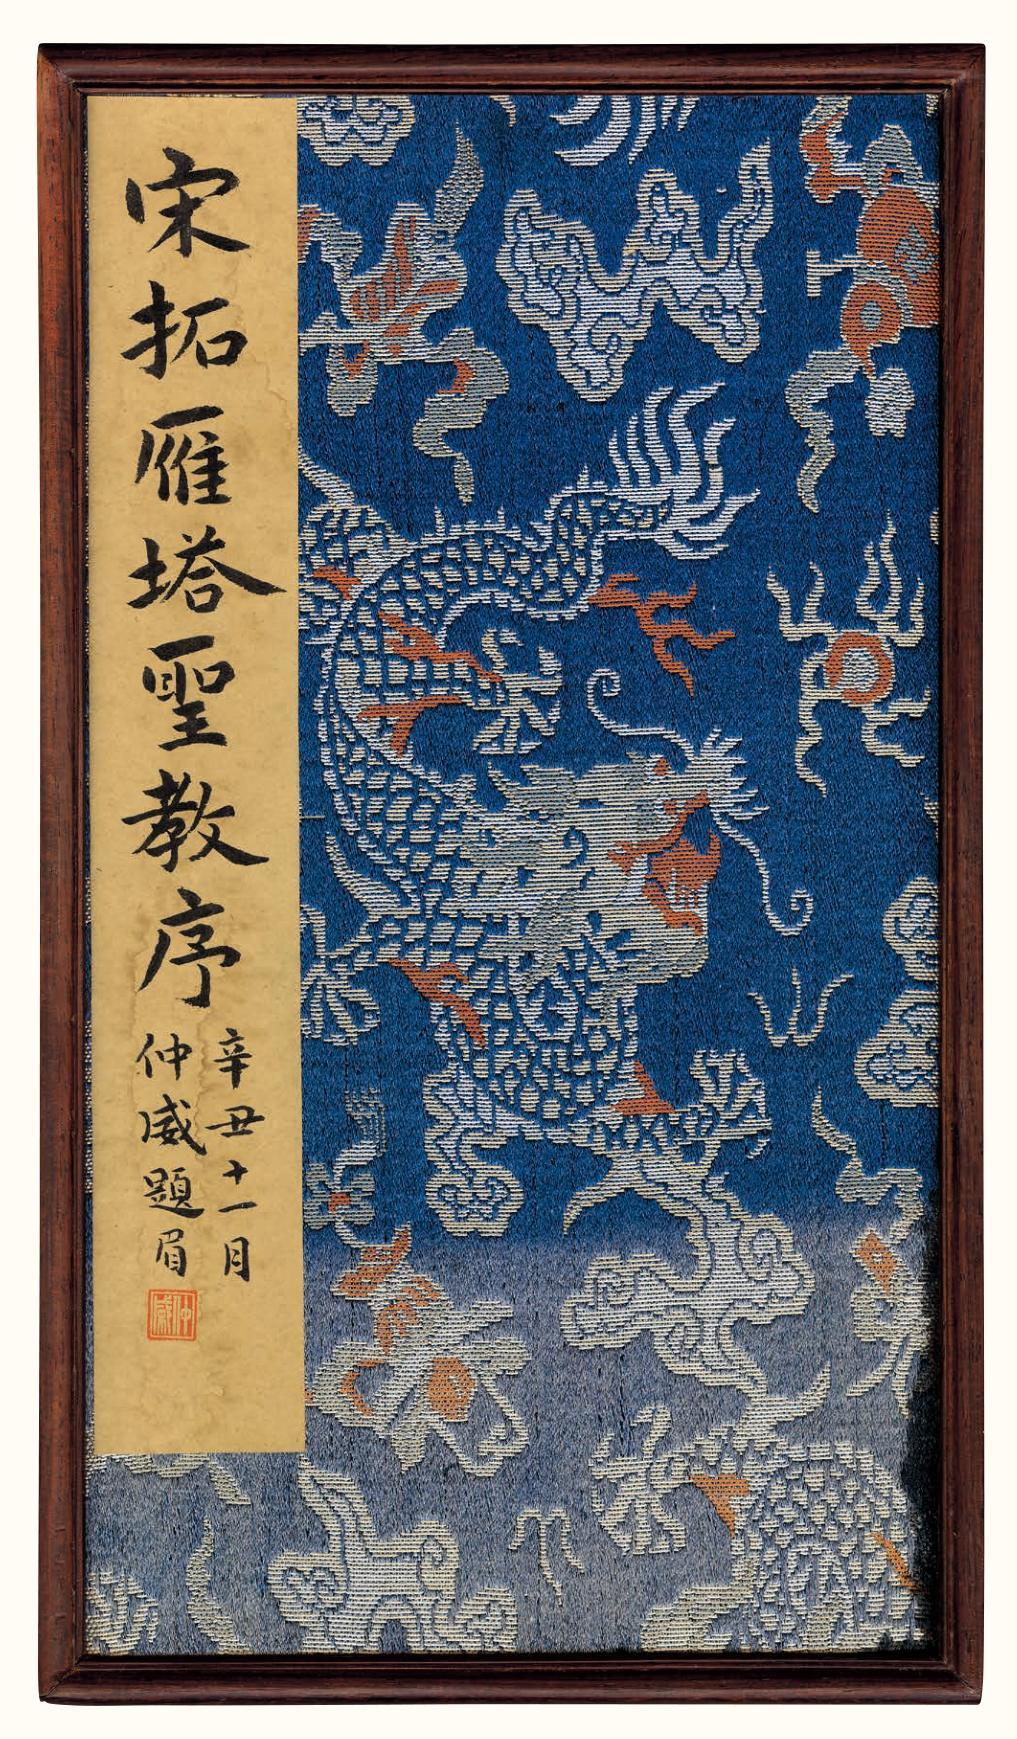 宋拓雁塔聖教序
辛丑十一月
仲威題眉
仲威